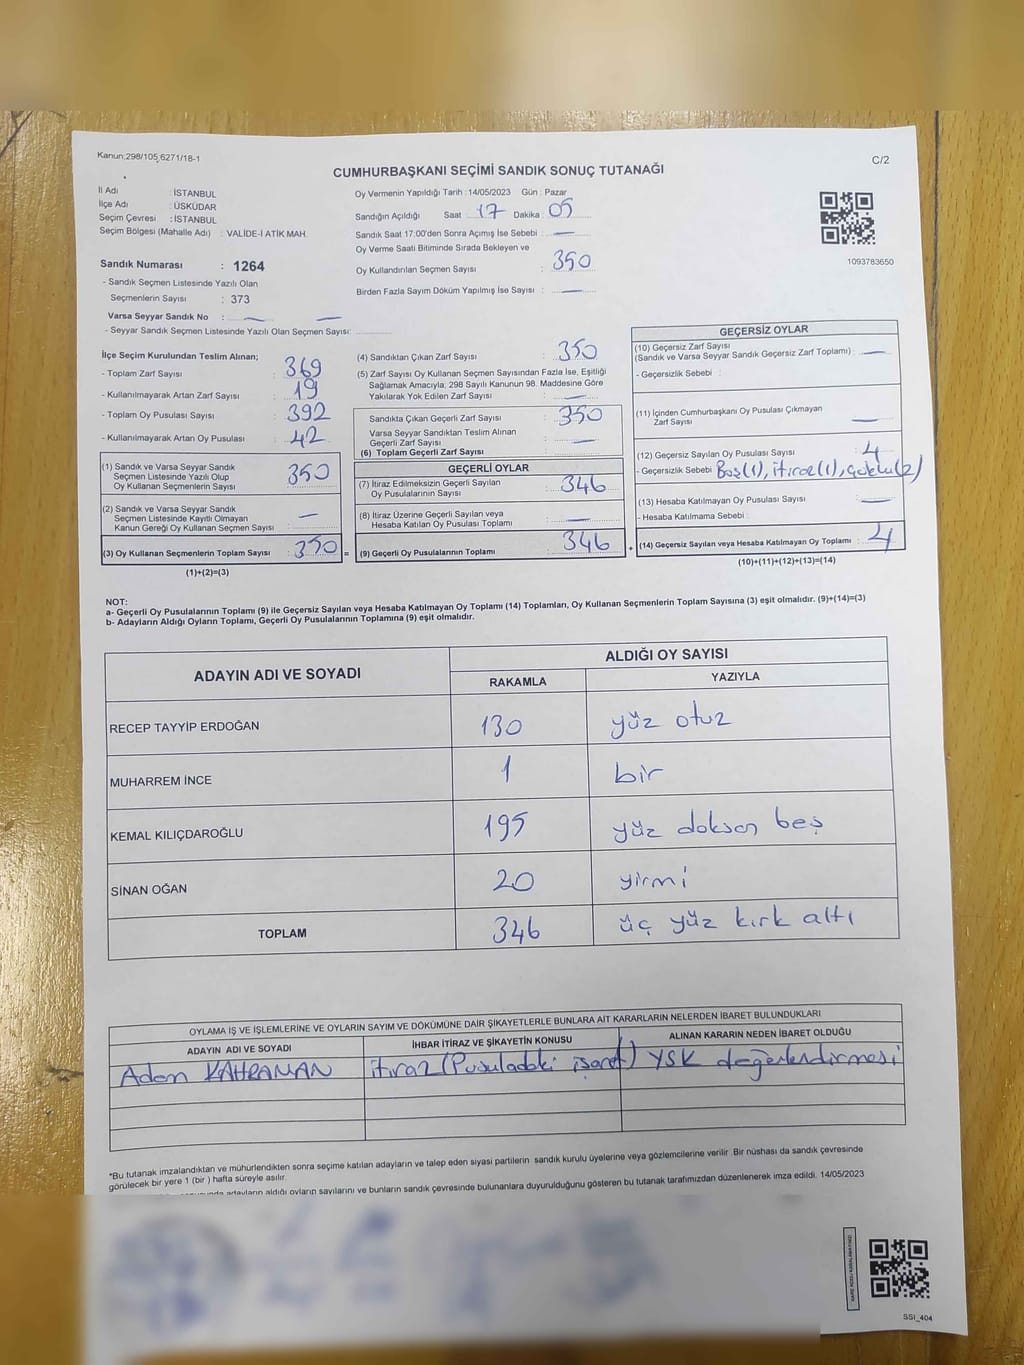 Kanun:298/105,6271/18-1
C/2
CUMHURBAŞKANI SEÇİMİ SANDIK SONUÇ TUTANAĞI
İl Adı : İSTANBUL
İlçe Adı : ÜSKÜDAR
Seçim Çevresi : İSTANBUL
Seçim Bölgesi (Mahalle Adı) : VALİDE-İ ATİK MAH.
Sandık Numarası : 1264
- Sandık Seçmen Listesinde Yazılı Olan
Seçmenlerin Sayısı : 373
Varsa Seyyar Sandık No : — —
- Seyyar Sandık Seçmen Listesinde Yazılı Olan Seçmen Sayısı:
Oy Vermenin Yapıldığı Tarih : 14/05/2023 Gün : Pazar
Sandığın Açıldığı Saat : 17 Dakika : 05
Sandık Saat 17:00'den Sonra Açımış İse Sebebi : —
Oy Verme Saati Bitiminde Sırada Bekleyen ve
Oy Kullandırılan Seçmen Sayısı : 350
Birden Fazla Sayım Döküm Yapılmış İse Sayısı : —
1093783650
İlçe Seçim Kurulundan Teslim Alınan;
- Toplam Zarf Sayısı : 369
- Kullanılmayarak Artan Zarf Sayısı : 19
- Toplam Oy Pusulası Sayısı : 392
- Kullanılmayarak Artan Oy Pusulası : 42
(1) Sandık ve Varsa Seyyar Sandık
Seçmen Listesinde Yazılı Olup
Oy Kullanan Seçmenlerin Sayısı : 350
(2) Sandık ve Varsa Seyyar Sandık
Seçmen Listesinde Kayıtlı Olmayan
Kanun Gereği Oy Kullanan Seçmen Sayısı : —
(3) Oy Kullanan Seçmenlerin Toplam Sayısı : 350 =
(1)+(2)=(3)
(4) Sandıktan Çıkan Zarf Sayısı : 350
(5) Zarf Sayısı Oy Kullanan Seçmen Sayısından Fazla İse, Eşitliği
Sağlamak Amacıyla; 298 Sayılı Kanunun 98. Maddesine Göre
Yakılarak Yok Edilen Zarf Sayısı : —
Sandıkta Çıkan Geçerli Zarf Sayısı : 350
Varsa Seyyar Sandıktan Teslim Alınan
Geçerli Zarf Sayısı : —
(6) Toplam Geçerli Zarf Sayısı :
GEÇERLİ OYLAR
(7) İtiraz Edilmeksizin Geçerli Sayılan
Oy Pusulalarının Sayısı : 346
(8) İtiraz Üzerine Geçerli Sayılan veya
Hesaba Katılan Oy Pusulası Toplamı : —
(9) Geçerli Oy Pusulalarının Toplamı : 346 +
GEÇERSİZ OYLAR
(10) Geçersiz Zarf Sayısı
(Sandık ve Varsa Seyyar Sandık Geçersiz Zarf Toplamı) : —
- Geçersizlik Sebebi :
(11) İçinden Cumhurbaşkanı Oy Pusulası Çıkmayan
Zarf Sayısı : —
(12) Geçersiz Sayılan Oy Pusulası Sayısı : 4
- Geçersizlik Sebebi : Boş(1), itiraz(1), çoklu(2)
(13) Hesaba Katılmayan Oy Pusulası Sayısı : —
- Hesaba Katılmama Sebebi :
(14) Geçersiz Sayılan veya Hesaba Katılmayan Oy Toplamı : 4
(10)+(11)+(12)+(13)=(14)
NOT:
a- Geçerli Oy Pusulalarının Toplamı (9) ile Geçersiz Sayılan veya Hesaba Katılmayan Oy Toplamı (14) Toplamları, Oy Kullanan Seçmenlerin Toplam Sayısına (3) eşit olmalıdır. (9)+(14)=(3)
b- Adayların Aldığı Oyların Toplamı, Geçerli Oy Pusulalarının Toplamına (9) eşit olmalıdır.
ADAYIN ADI VE SOYADI
ALDIĞI OY SAYISI
RAKAMLA YAZIYLA
RECEP TAYYİP ERDOĞAN 130 yüz otuz
MUHARREM İNCE 1 bir
KEMAL KILIÇDAROĞLU 195 yüz doksan beş
SİNAN OĞAN 20 yirmi
TOPLAM 346 üç yüz kırk altı
OYLAMA İŞ VE İŞLEMLERİNE VE OYLARIN SAYIM VE DÖKÜMÜNE DAİR ŞİKAYETLERLE BUNLARA AİT KARARLARIN NELERDEN İBARET BULUNDUKLARI
ADAYIN ADI VE SOYADI İHBAR İTİRAZ VE ŞİKAYETİN KONUSU ALINAN KARARIN NEDEN İBARET OLDUĞU
Adem KAHRAMAN itiraz (Pusuladaki işaret) YSK değerlendirmesi
*Bu tutanak imzalandıktan ve mühürlendikten sonra seçime katılan adayların ve talep eden siyasi partilerin sandık kurulu üyelerine veya gözlemcilerine verilir. Bir nüshası da sandık çevresinde
görülecek bir yere 1 (bir ) hafta süreyle asılır.
adayların aldığı oyların sayılarını ve bunların sandık çevresinde bulunanlara duyurulduğunu gösteren bu tutanak tarafımızdan düzenlenerek imza edildi. 14/05/2023
SSI_404